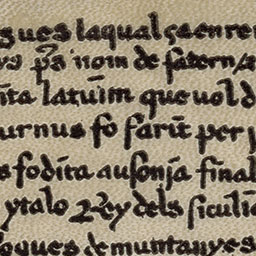 gues laqual ça en re
nom de saturn
ita latuīm que uol d
urnus fo farit per
s fo dita ausonja final
ytalo Rey dels siculi
gues de muntanyes